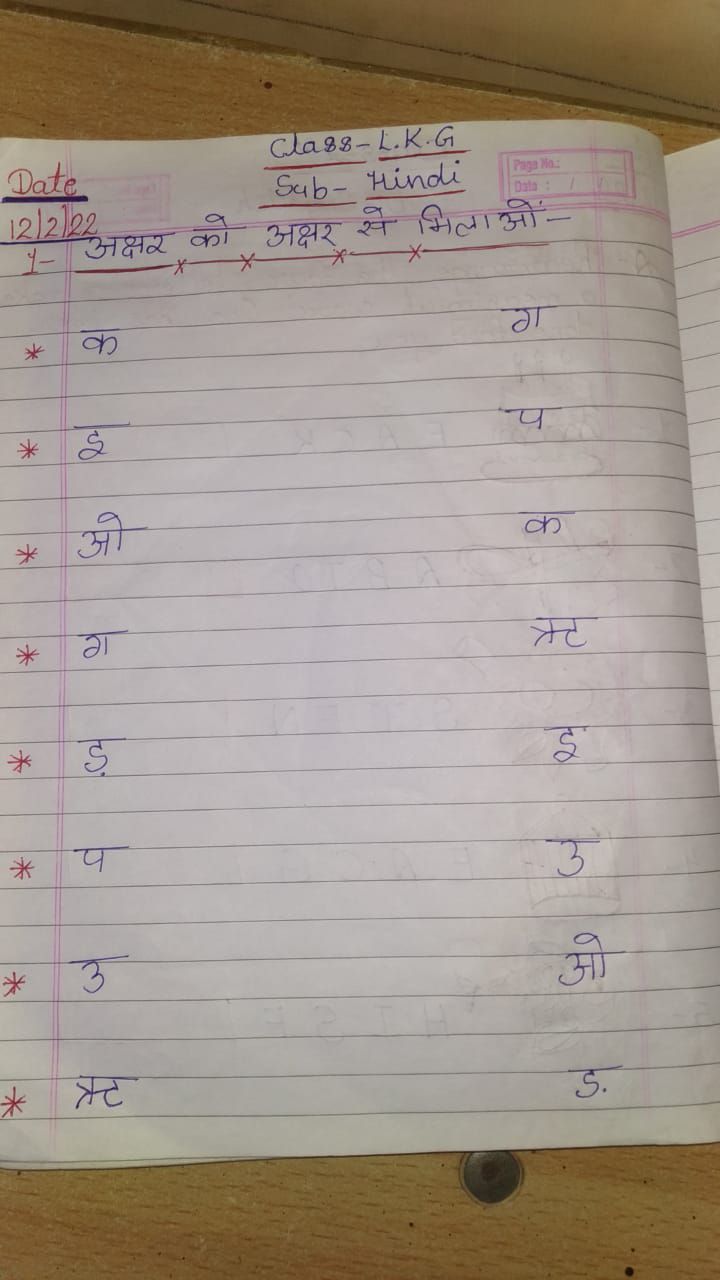 Class - L.K.G
Page No.:
Date
Sub - Hindi
Date : / /
12/2/22
1- अक्षर को अक्षर से मिलाओं:-
* क ग
* इ प
* ओ क
* ग ऋ
* ड़ इ
* प उ
* उ ओ
* ऋ ड.